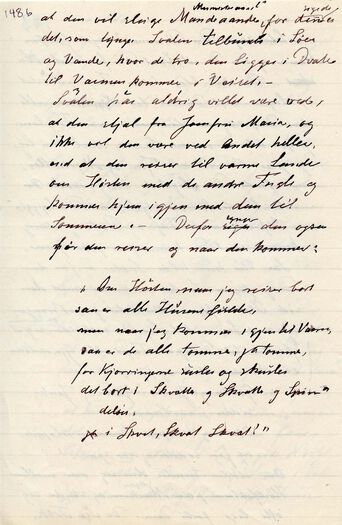 1486
at den vil sluge Mandeaande, for
det, som synger Svalen tilbunds i Søer
og Vande, hvor de tro, den ligger i Dvale
til Varmen kommer i Vejret.
Svalen har aldrig villet være ved,
at den stjal fra Jomfru Maria, og
ikke vil den være ved andet heller,
end at den rejser til varme Lande
om Hösten med de andre Fugle og
kommer hjem igjen med dem til
Sommeren. — Derfor synger den ogsaa
før den rejser og naar den kommer:
"Om Hösten, naar jeg rejser bort
saa er alle Husene fulde,
men naar jeg kommer igjen til Vaaren,
saa er de alle tomme, ja tomme,
for Kjærringerne
det bort i Skvatte og Skvatte og Spin"
delse,
ja i Skvat, Skvat Skvat!"